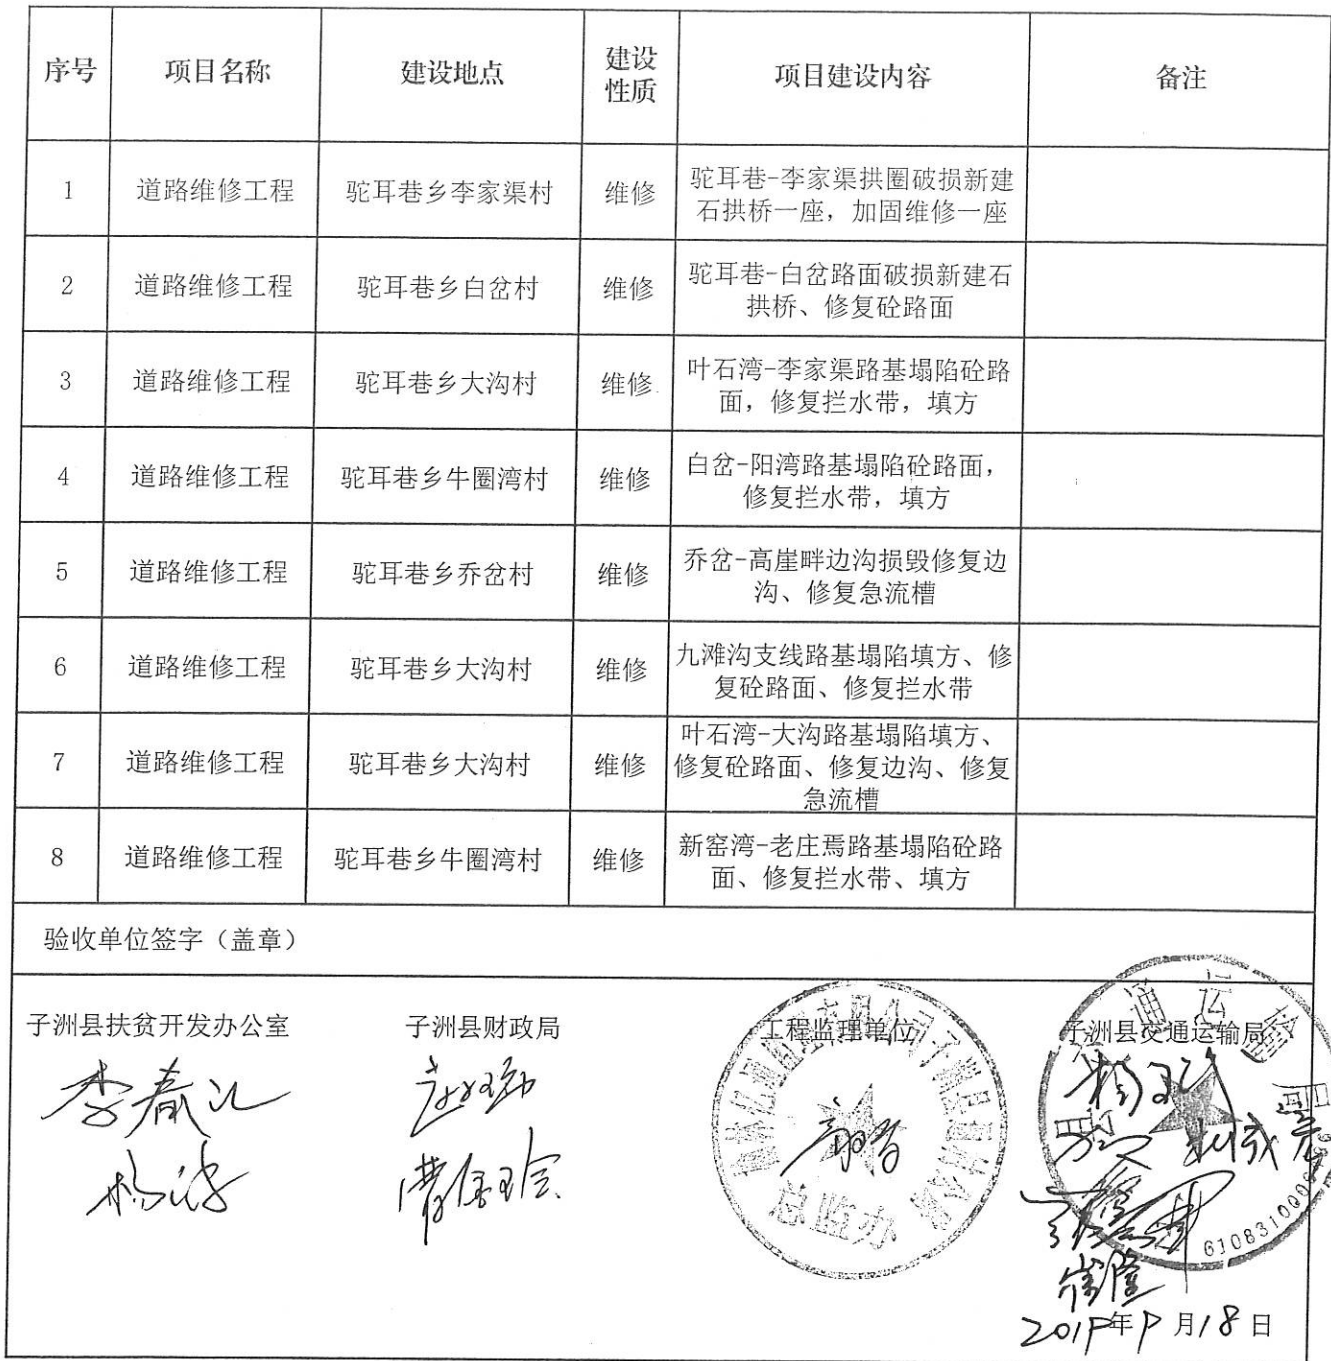 序号 项目名称 建设地点 建设性质 项目建设内容 备注
1 道路维修工程 驼耳巷乡李家渠村 维修 驼耳巷-李家渠拱圈破损新建
石拱桥一座，加固维修一座
2 道路维修工程 驼耳巷乡白岔村 维修 驼耳巷-白岔路面破损新建石
拱桥、修复砼路面
3 道路维修工程 驼耳巷乡大沟村 维修 叶石湾-李家渠路基塌陷砼路
面，修复拦水带，填方
4 道路维修工程 驼耳巷乡牛圈湾村 维修 白岔-阳湾路基塌陷砼路面，
修复拦水带，填方
5 道路维修工程 驼耳巷乡乔岔村 维修 乔岔-高崖畔边沟损毁修复边
沟、修复急流槽
6 道路维修工程 驼耳巷乡大沟村 维修 九滩沟支线路基塌陷填方、修
复砼路面、修复拦水带
7 道路维修工程 驼耳巷乡大沟村 维修 叶石湾-大沟路基塌陷填方、
修复砼路面、修复边沟、修复
急流槽
8 道路维修工程 驼耳巷乡牛圈湾村 维修 新窑湾-老庄焉路基塌陷砼路
面、修复拦水带、填方
验收单位签字（盖章）
子洲县扶贫开发办公室 子洲县财政局 工程监理单位 子洲县交通运输局
总监办
年 月18日